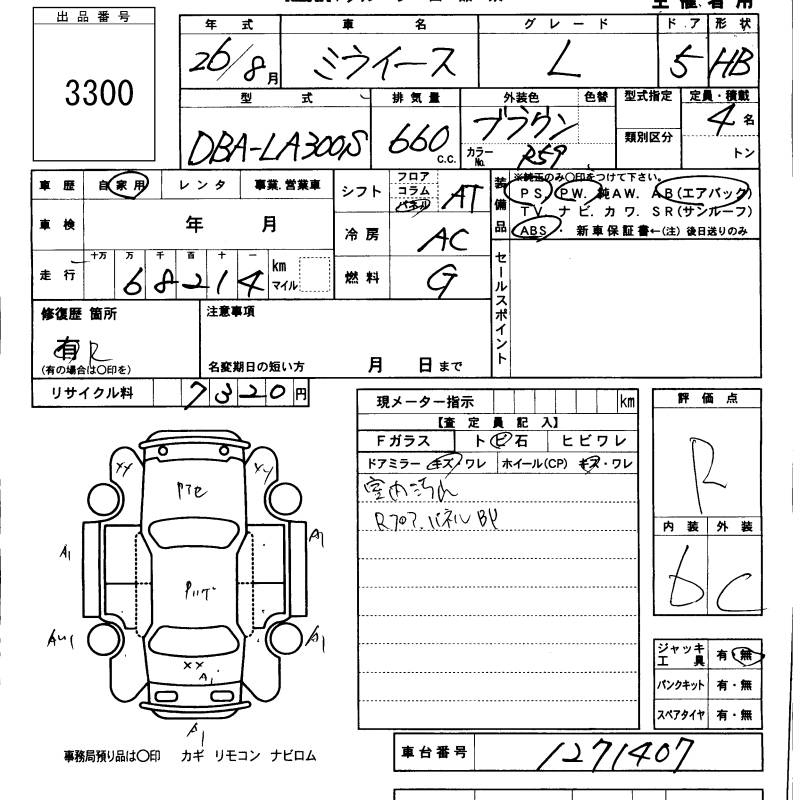 出品番号
3300
年式 車名 グレード ドア 形状
26/8月 ミライース L 5 HB
型式 排気量 外装色 色替 型式指定 定員・積載
DBA-LA300S 660 c.c. ブラウン 類別区分 4名
カラーNo. R59 トン
車歴 自家用 レンタ 事業.営業車
シフト フロア コラム パネル AT
装備品 ※純正のみ○印をつけて下さい。
PS. PW. 純AW. AB(エアバック)
TV. ナビ. カワ. SR(サンルーフ)
ABS・新車保証書←(注)後日送りのみ
車検 年 月
冷房 AC
走行 十万 万 千 百 十 一
68214 km マイル
燃料 G
セールスポイント
修復歴 箇所
有 R
(有の場合は○印を)
注意事項
名変期日の短い方 月 日まで
リサイクル料 7320円
現メーター指示 km
【査定員記入】
Fガラス トビ石 ヒビワレ
ドアミラー キズ・ワレ ホイール(CP) キズ・ワレ
室内汚れ
Rフロア.パネル
評価点
R
内装 外装
D C
XY XY
A1 A1
A1
XX
A1
A1
ジャッキ工具 有・無
パンクキット 有・無
スペアタイヤ 有・無
事務局預り品は○印 カギ リモコン ナビロム
車台番号 1271407